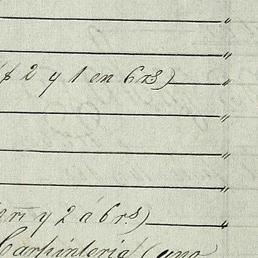 "
"
$ 2 y 1 en 6 rs) "
"
"
"
y 2 á 6 rs) "
Carpinteria (uno